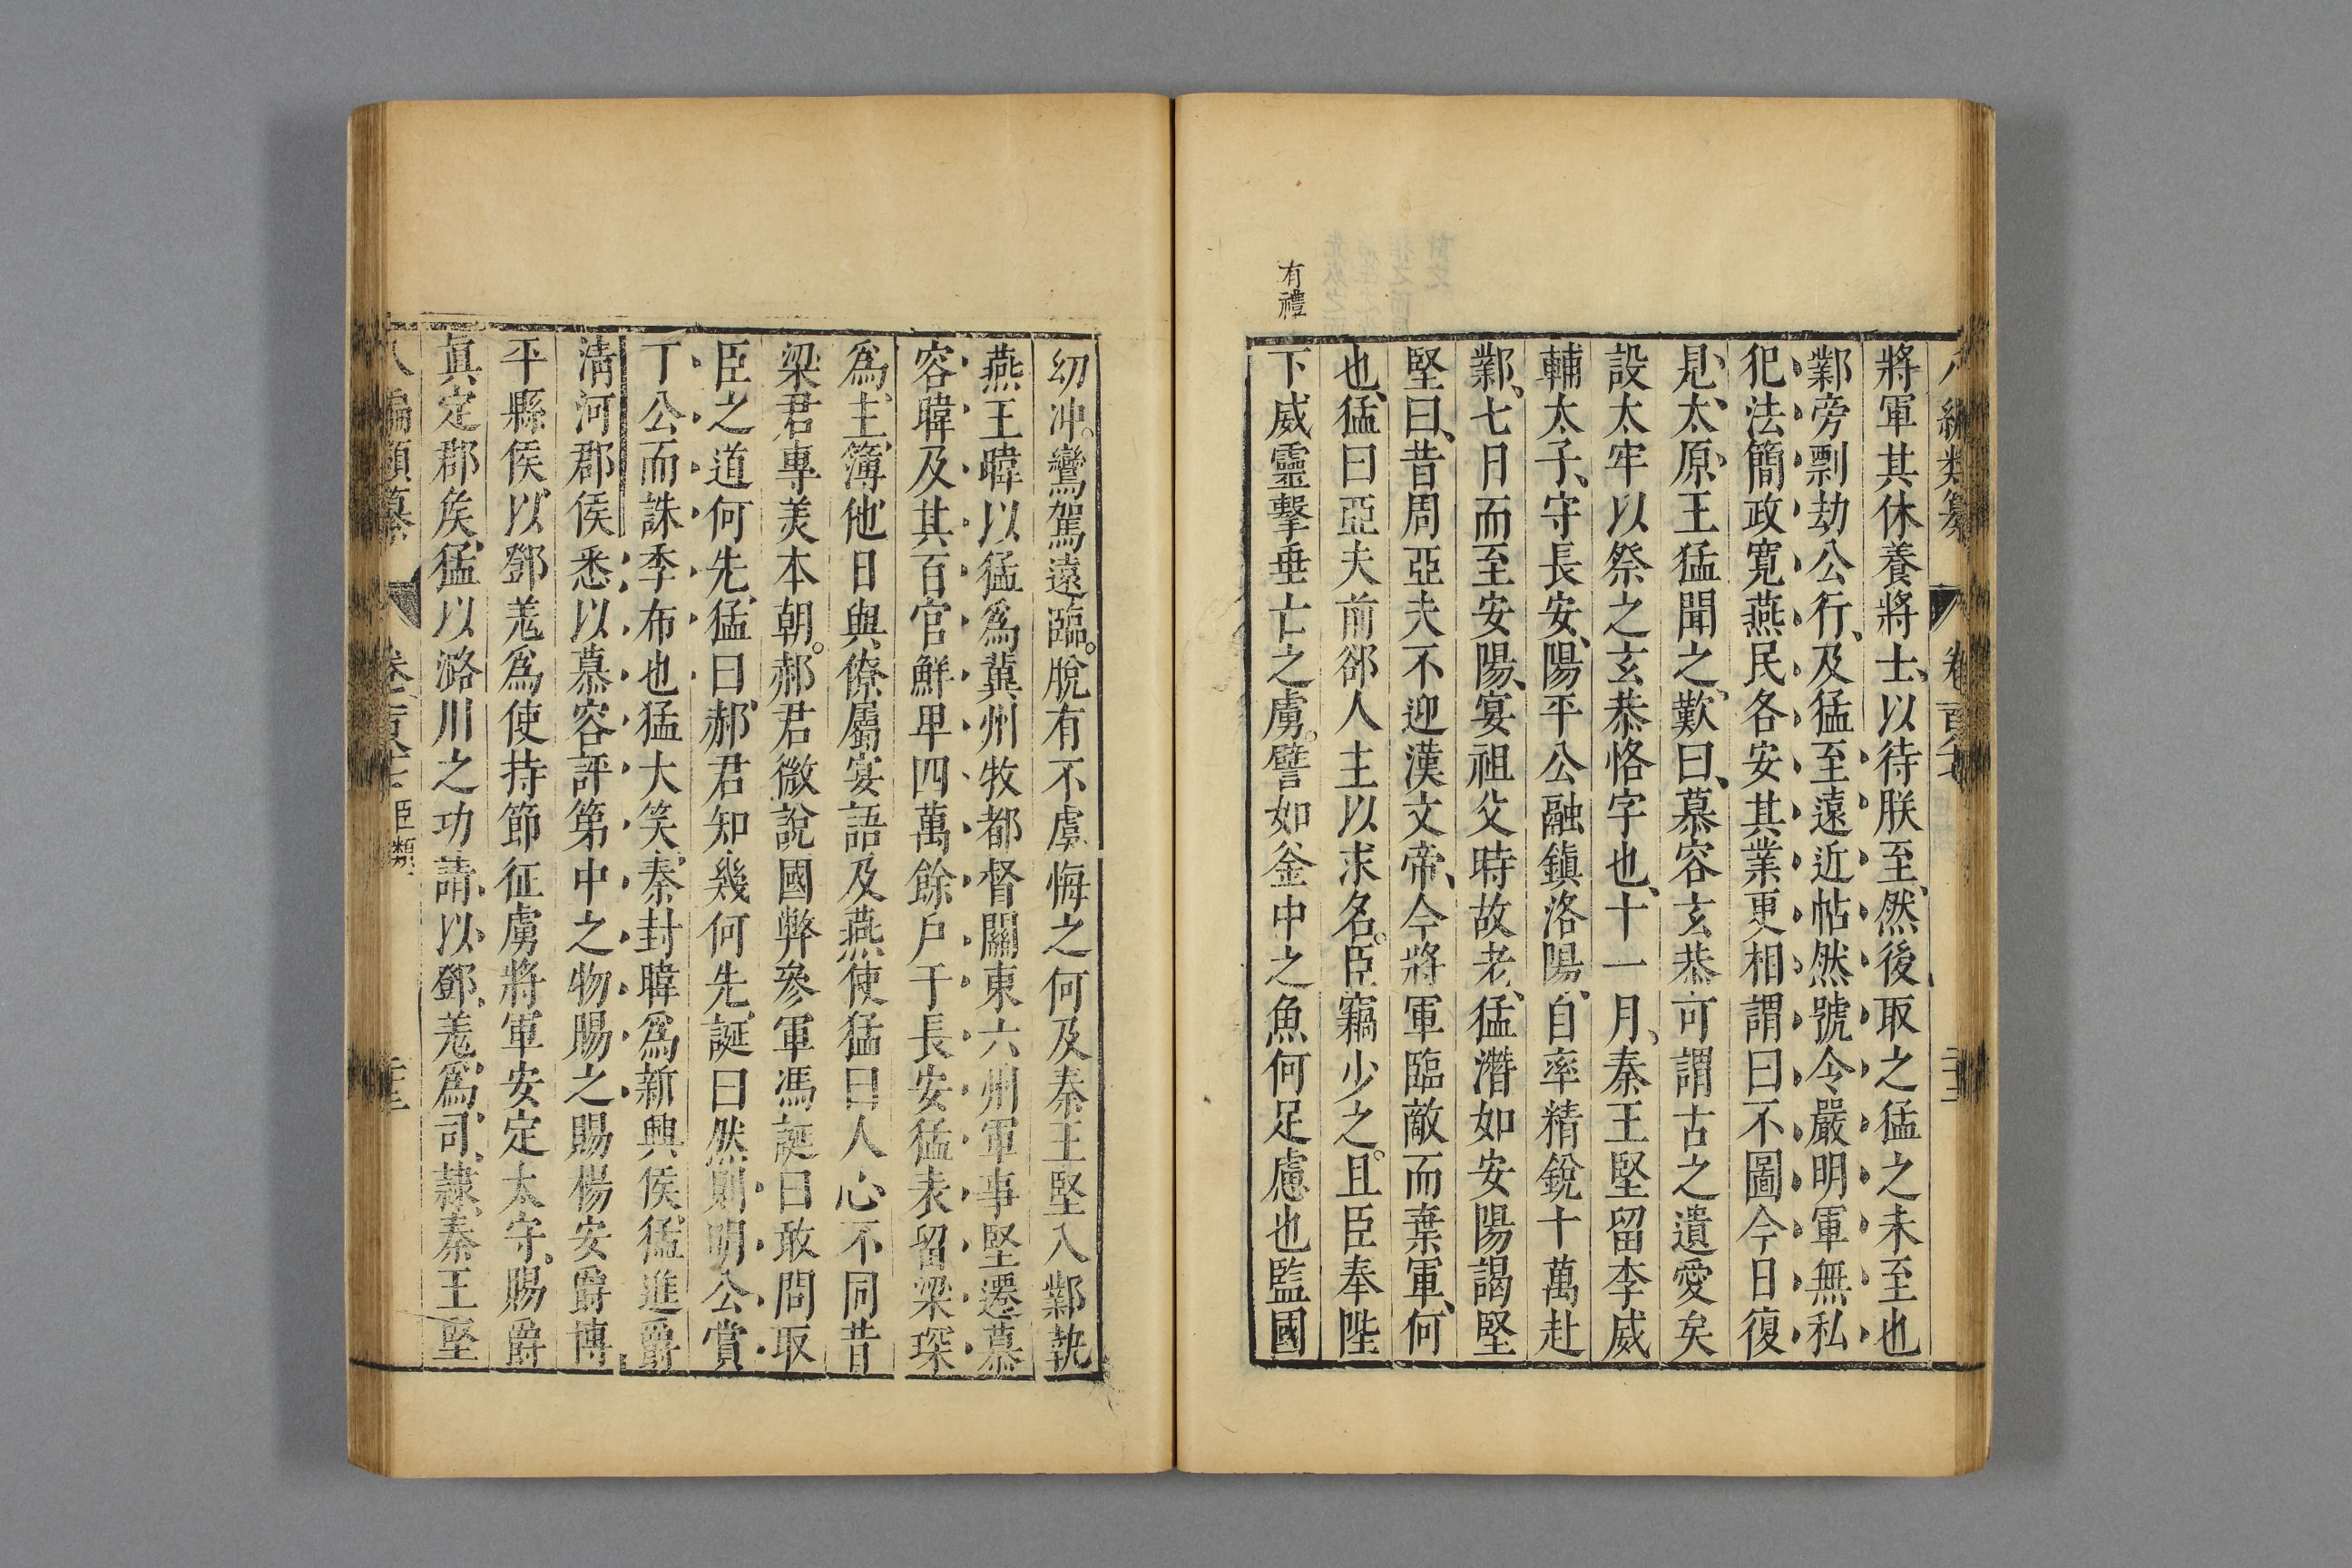 將軍其休養將士、以待朕至、然後取之猛之未至也
鄴旁剽劫公行、及猛至遠近帖然號令嚴明軍無私
犯法簡政寬燕民各安其業更相謂曰不圖今日復
見太原王猛聞之歎曰、慕容玄恭可謂古之遺愛矣
設太牢以祭之玄恭恪字也、十一月、秦王堅留李威
輔太子、守長安、陽平公融鎮洛陽、自率精銳十萬赴
鄴、七日而至安陽、宴祖父時故老、猛潛如安陽謁堅
堅曰、昔周亞夫不迎漢文帝、今將軍臨敵而棄軍、何
也、猛曰亞夫前郤人主以求名。臣竊少之。且臣奉陛
下威靈擊垂亡之虜。譬如釜中之魚何足慮也監國
有禮
幼冲。鸞駕遠臨。脫有不虞悔之何及秦王堅入鄴執
燕王暐以猛爲冀州牧都督關東六州軍事堅遷慕
容暐及其百官鮮卑四萬餘戶于長安猛表留梁琛
爲主簿他日與僚屬宴語及燕使猛曰人心不同昔
梁君專美本朝。郝君微說國弊參軍馮誕曰敢問取
臣之道何先、猛曰、郝君知幾何先、誕曰然則明公賞
丁公而誅季布也猛大笑、秦封暐爲新興侯猛進爵
清河郡侯悉以慕容評第中之物賜之賜楊安爵博
平縣侯以鄧羌爲使持節征虜將軍安定太守。賜爵
眞定郡侯、猛以潞川之功請以鄧羌爲司隸、秦王堅
八編類纂 卷 臣類